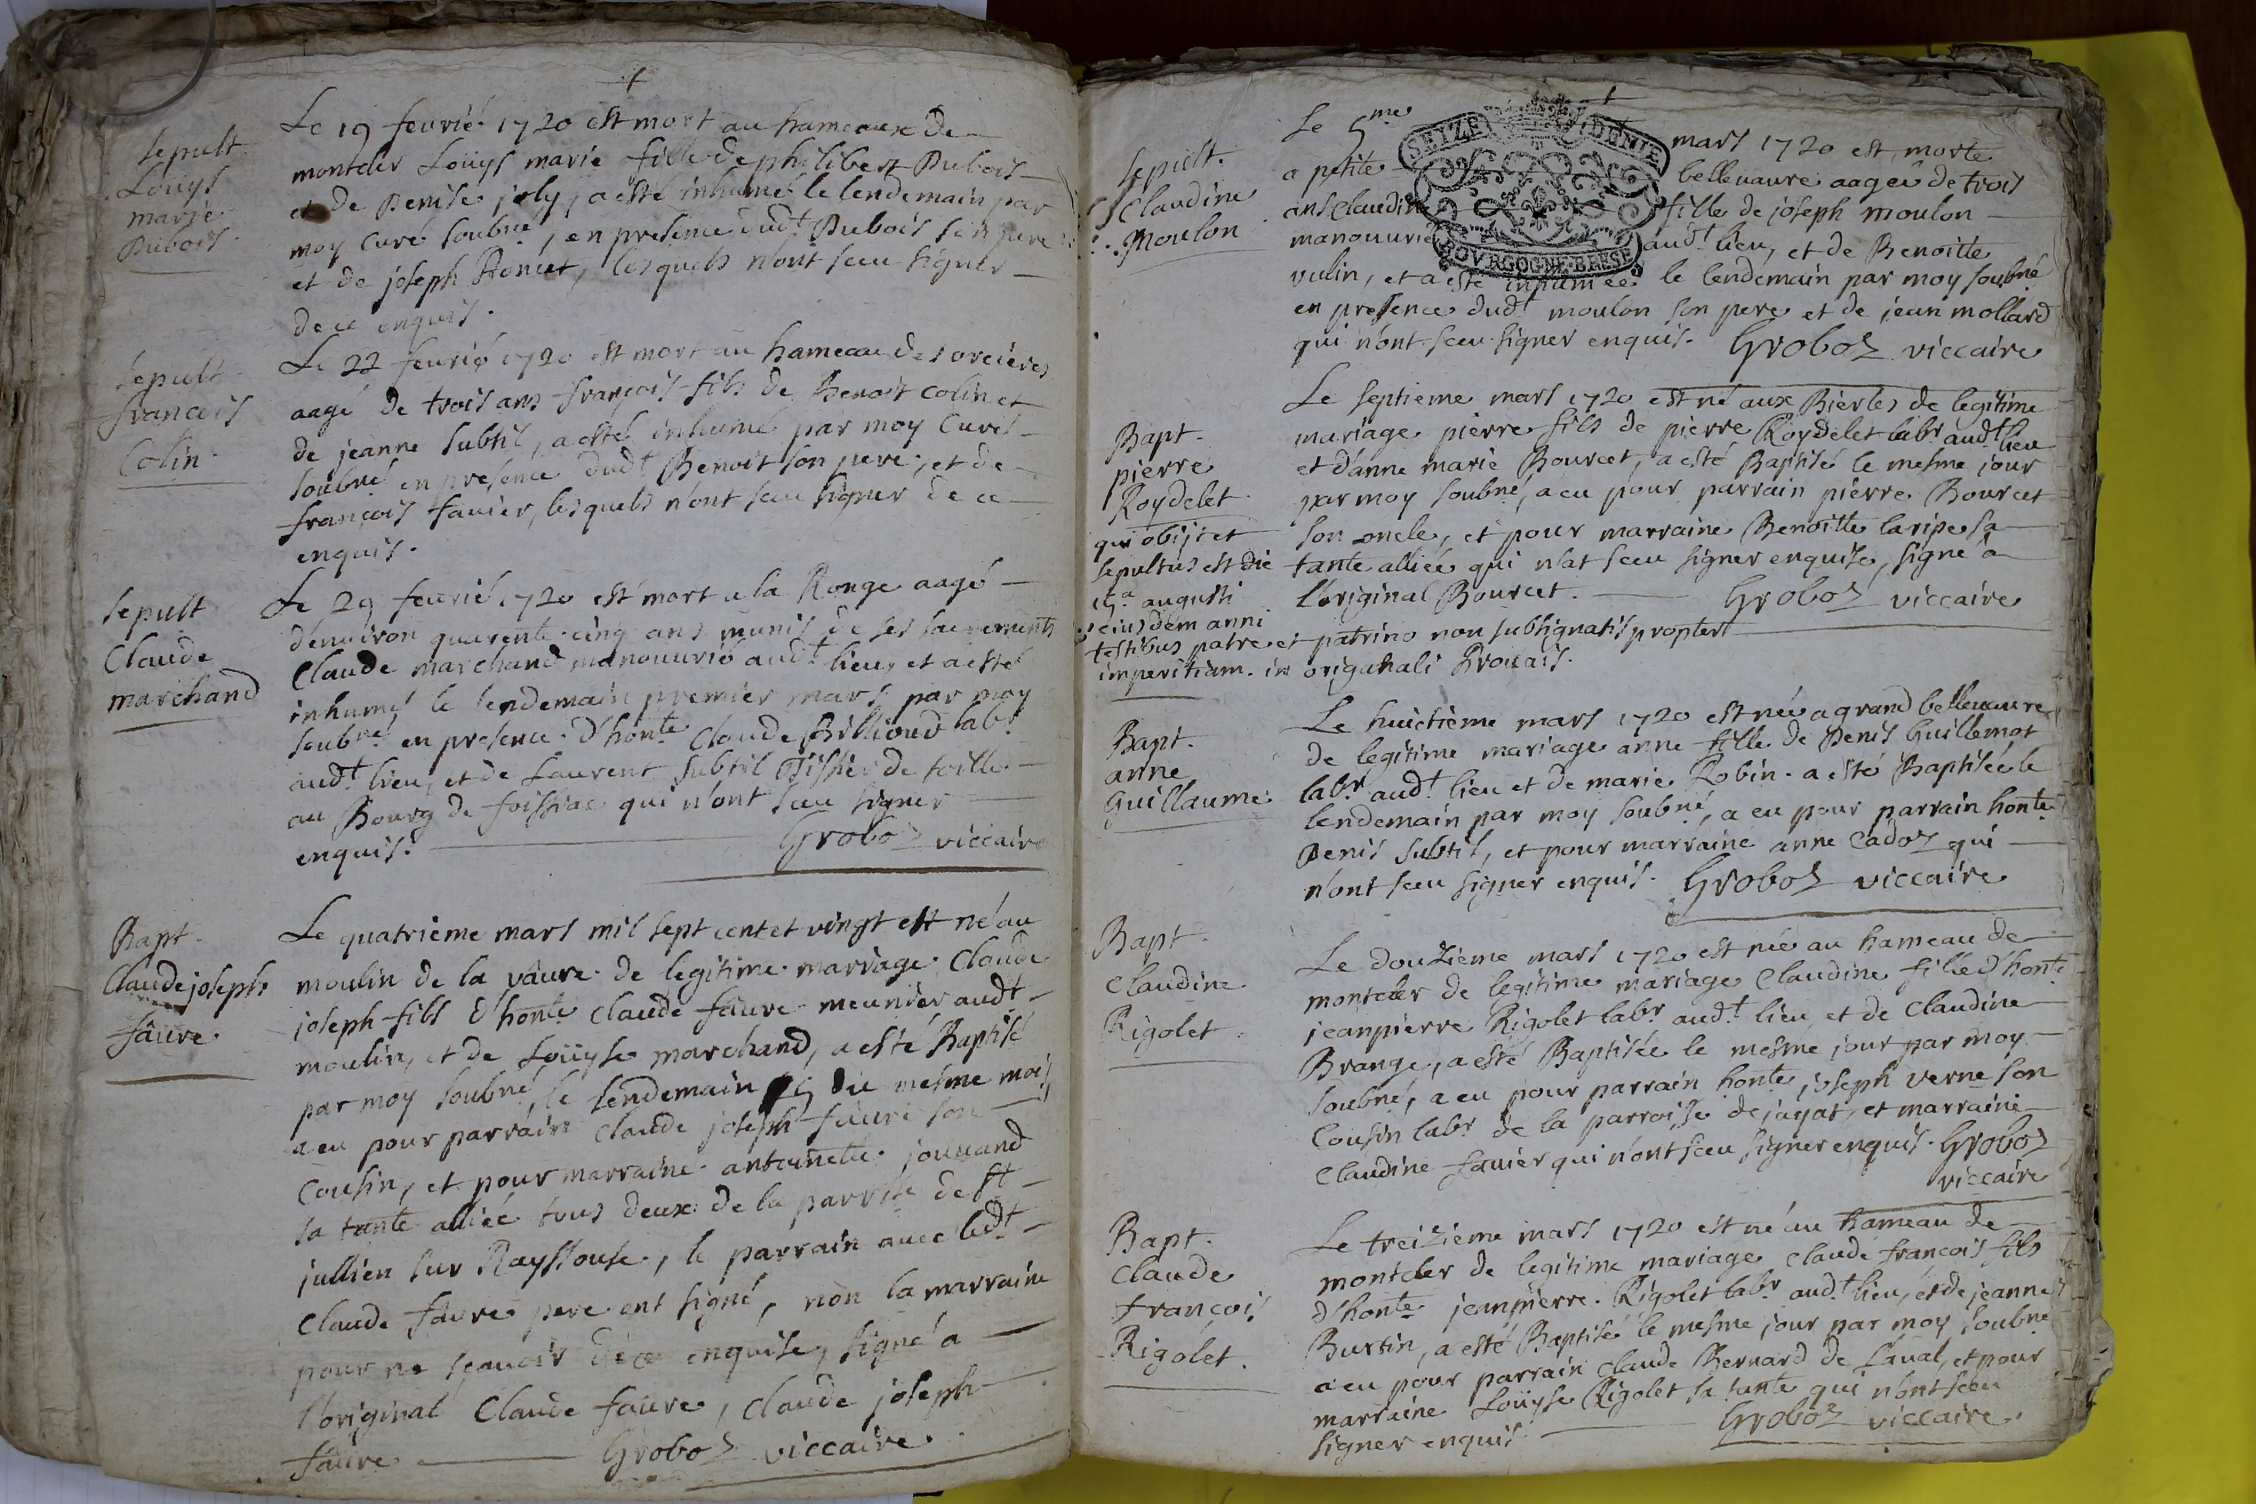 sepult.
Loüys
marie
Dubois.
Le 19 feurié 1720 est mort au hameaux de
montcler Loüys marie fille de philibert Dubois
et de Denise joly, a esté inhumé le lendemain par
moy Curé soubné, en presence dudt Dubois son pere
et de joseph, lesquels n'ont sceu signer
de ce enquis.
sepult.
françois
Colin.
Le 22 feurié 1720 est mort au hameau des orcieres
aagé de trois ans françois fils de Benoit Colin et
de jeanne subtil, a esté inhumé par moy Curé
soubné en presence dudt Benoit son pere, et de
françois fauier, lesquels n'ont sceu signer de ce
enquis.
sepult
Claude
marchand
Le 29 feurié 1720 est mort a la Ronge aagé
denuiron quarente cinq ans munis de ses sacrements
Claude marchand manouurié audt lieu, et a esté
inhumé le lendemain premier mars par moy
soubné en presence d'honte Claude Billioud labr
audt lieu, et de Laurent subtil Tissier de toille
au Bourg de foissiac qui n'ont sceu signer
enquis. Groboz viccaire
Bapt.
Claude joseph
faure.
Le quatrieme mars mil sept cent et vingt est né au
moulin de la vaure de legitime mariage Claude
joseph fils d'honte Claude faure meunier audt
moulin, et de Loüyse marchand, a esté Baptisé
par moy soubné, le lendemain 5 du mesme mois
a eu pour parrain Claude joseph faure son
Cousin, et pour marraine antoinette jouuand
sa tante alliée tous deux de la parroise de st
jullien sur Rayssouse, le parrain auec ledt
Claude faure pere ont signé, non la marraine
pour ne sçauoir de ce enquise, signé a
l'original Claude faure, Claude joseph
faure. Groboz viccaire.
sepult.
Claudine
Moulon
Le 5me mars 1720 est morte
a petite belleuaure aagée de trois
ans Claudine fille de joseph moulon
manouurié audt lieu, et de Benoitte
vulin, et a esté inhumée le lendemain par moy soubné
en presence dudt moulon son pere et de jean mollard
qui n'ont sceu signer enquis. Groboz viccaire
SEIZE DENIE
BOVRGOGNE BRESSE
Bapt.
pierre
Roydelet.
qui obijt et
sepultus est die
15a augusti
eiusdem anni
testibus patre et patrino non subsignatis propter
imperitiam. in originali Brouais.
Le septieme mars 1720 est né aux Bierles de legitime
mariage pierre fils de pierre Roydelet labr audt lieu
et d'anne marie Bourcet, a esté Baptisé le mesme jour
par moy soubné, a eu pour parrain pierre Bourcet
son oncle, et pour marraine Benoitte laripe sa
tante alliée qui n'at sceu signer enquise, signé a
l'original Bourcet. Groboz viccaire
Bapt.
anne
Guillaume.
Le huictieme mars 1720 est née a grand belleuaure
de legitime mariage anne fille de Denis Guillemot
labr audt lieu et de marie Robin. a esté Baptisée le
lendemain par moy soubné, a eu pour parrain honte
Denis subtil, et pour marraine anne Cadoz qui
n'ont sceu signer enquis. Groboz viccaire
Bapt.
Claudine
Rigolet.
Le douzieme mars 1720 est née au hameau de
montcler de legitime mariage Claudine fille d'honte
jeanpierre Rigolet labr audt lieu et de Claudine
Brange, a esté Baptisée le mesme jour par moy
soubné, a eu pour parrain honte joseph verne son
Cousin labr de la parroisse de jayat, et marraine
Claudine fauier qui n'ont sceu signer enquis. Groboz
viccaire
Bapt.
Claude
françois
Rigolet.
Le treizieme mars 1720 est né au hameau de
montcler de legitime mariage Claude françois fils
d'honte jeanpierre Rigolet labr audt lieu, et de jeanne
Burtin, a esté Baptisé le mesme jour par moy soubné
a eu pour parrain Claude Bernard de Laual, et pour
marraine Loüyse Rigolet sa tante qui n'ont sceu
signer enquis. Groboz viccaire.